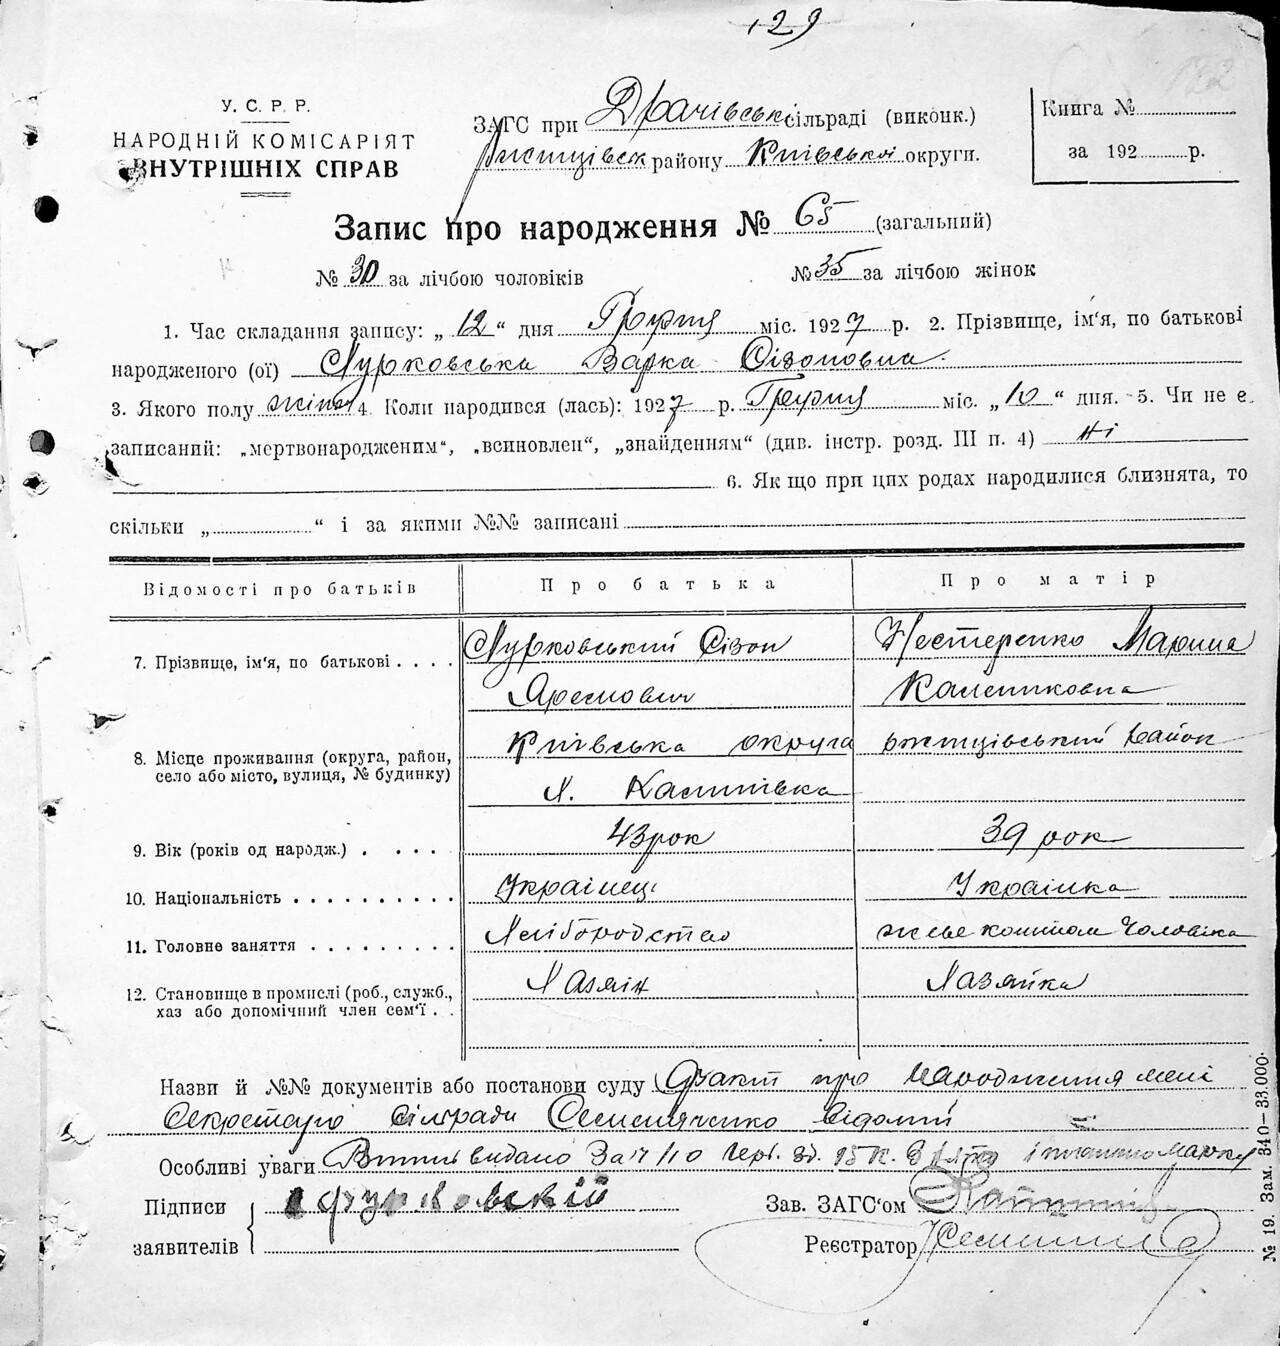 129
122
У. С. Р. Р.
НАРОДНІЙ КОМІСАРІЯТ
ВНУТРІШНІХ СПРАВ
ЗАГС при Драчівські сільраді (виконк.)
району Київської округи.
Книга №
за 192 р.
Запис про народження № 65 (загальний)
№ 30 за лічбою чоловіків № 35 за лічбою жінок
1. Час складання запису: „ 12 “ дня Грудня міс. 1927 р. 2. Прізвище, ім'я, по батькові
народженого (ої) Варка Сізоновна
3. Якого полу жіноч 4. Коли народився (лась): 1927 р. Грудня міс. „ 10 “ дня. 5. Чи не є
записаний: „мертвонародженим“, „всиновлен“, „знайденням“ (див. інстр. розд. III п. 4) ні
6. Як що при цих родах народилися близнята, то
скільки „ “ і за якими №№ записані
Відомості про батьків Про батька Про матір
7. Прізвище, ім'я, по батькові Сізон Нестеренко Марина
8. Місце проживання (округа, район, Київська округа ржищівський район
село або місто, вулиця, № будинку)
9. Вік (років од народж.) 43 рок 39 рок
10. Національність Українец Українка
11. Головне заняття Хліборобство живе коштом чоловіка
12. Становище в промислі (роб., служб., Хазяін Хазяйка
хаз або допомічний член сем'ї
Назви й №№ документів або постанови суду факт про народження мені
Секретарю сілради відомий
Особливі уваги видано
Підписи
заявителів
Зав. ЗАГС'ом
Реєстратор
№ 19. Зам. 340—33.000.